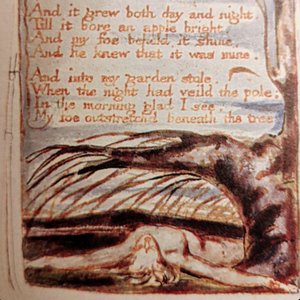 And it grew both day and night.
Till it bore an apple bright.
And my foe beheld it shine.
And he knew that it was mine.
And into my garden stole.
When the night had veild the pole;
In the morning glad I see,
My foe outstretchd beneath the tree